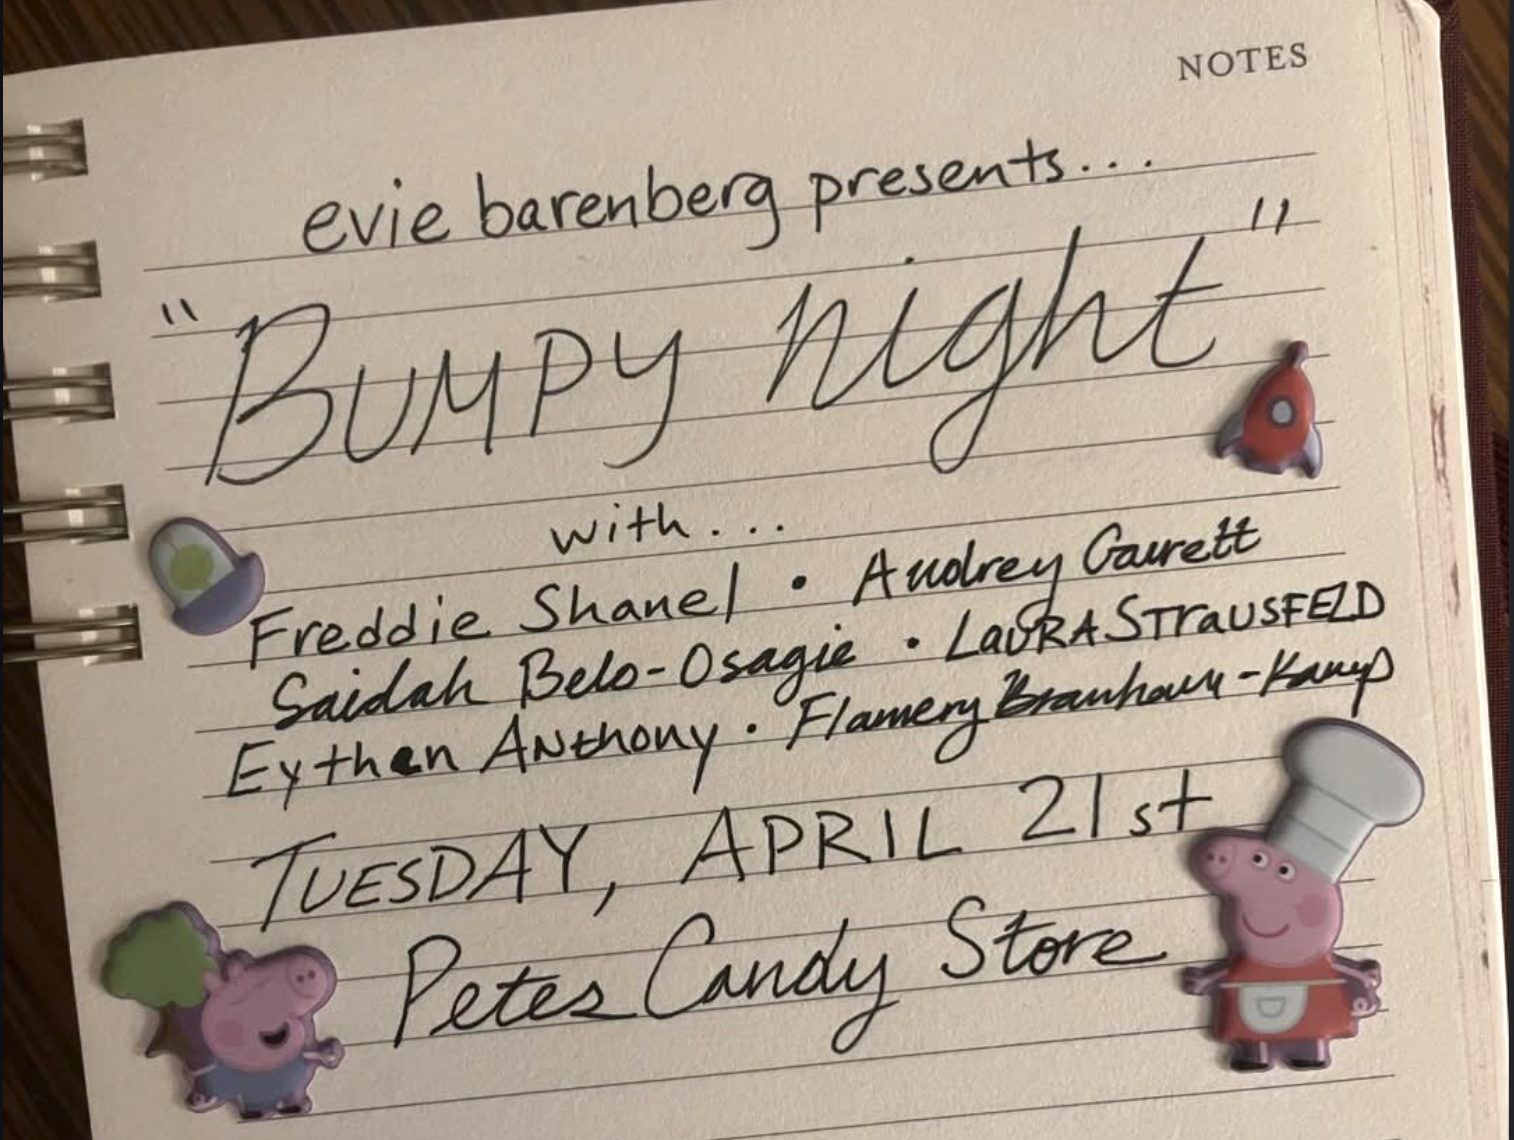 NOTES
evie barenberg presents...
"BUMPY night"
with...
Freddie Shanel • Audrey Garrett
Saidah Belo-Osagie • LaURA STraUSFELD
Eythan ANthony • Flamery Branham-Kamp
TUESDAY, APRIL 21st
Petes Candy Store